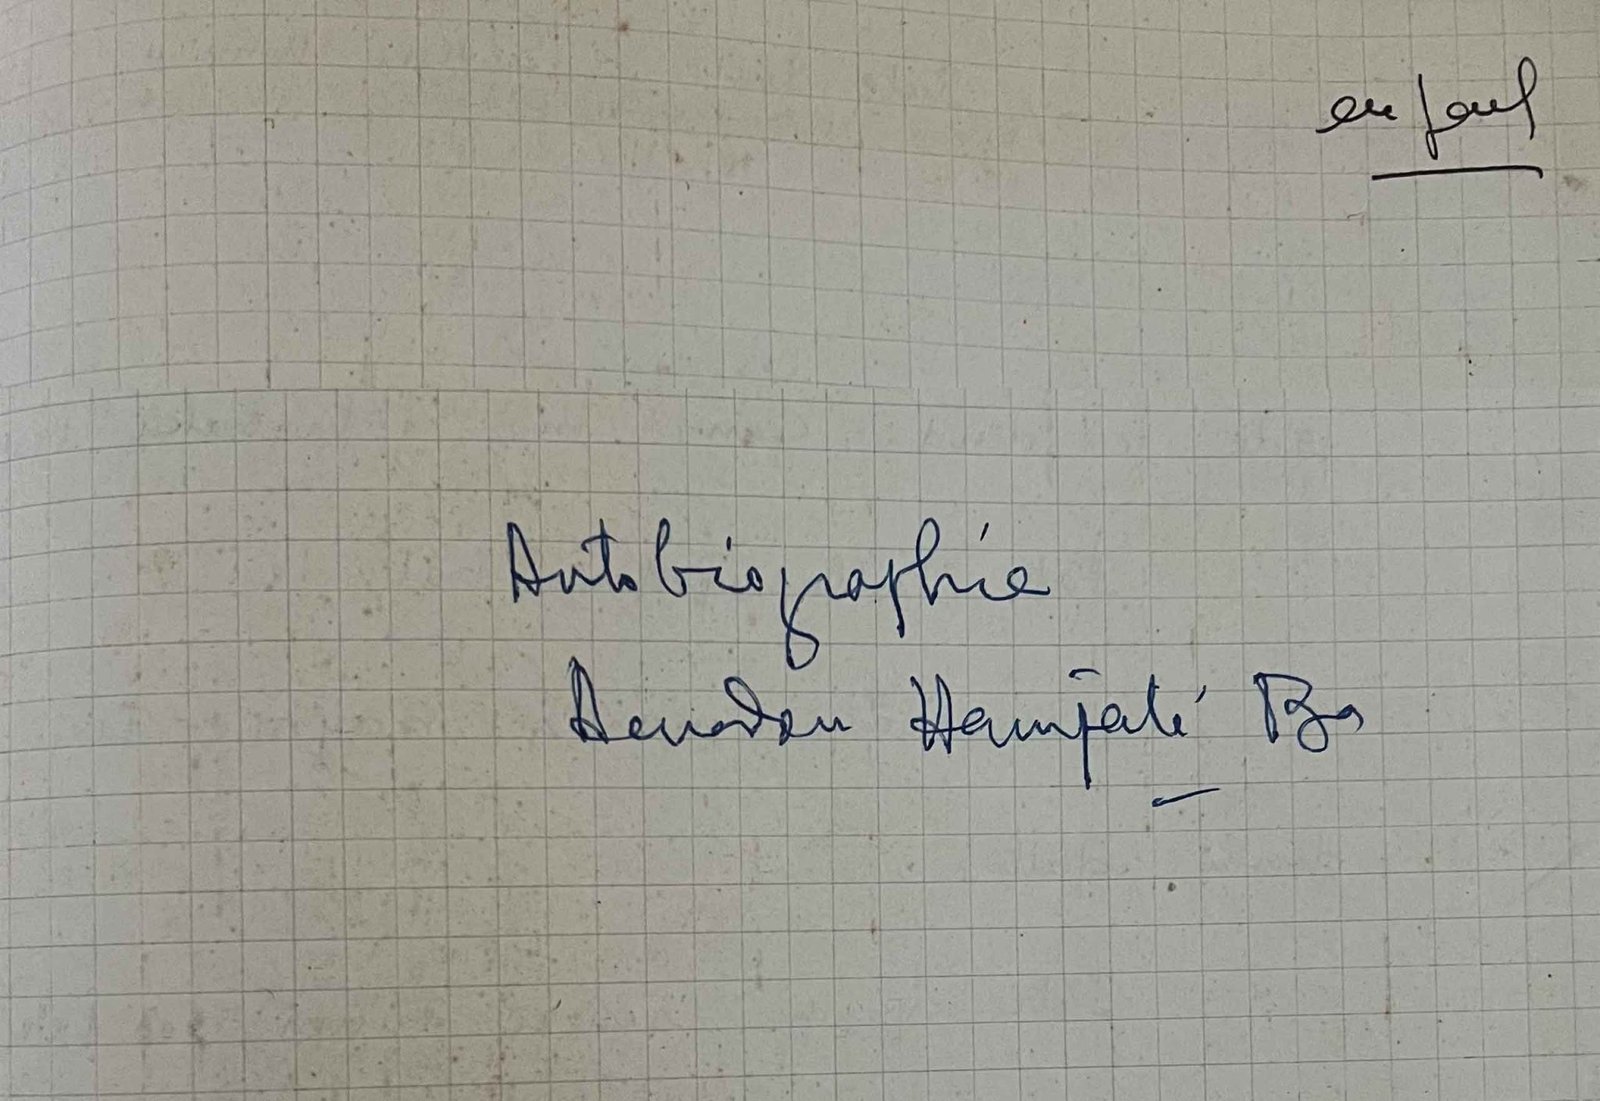 en peul
Autobiographie
Amadou Hampaté Ba